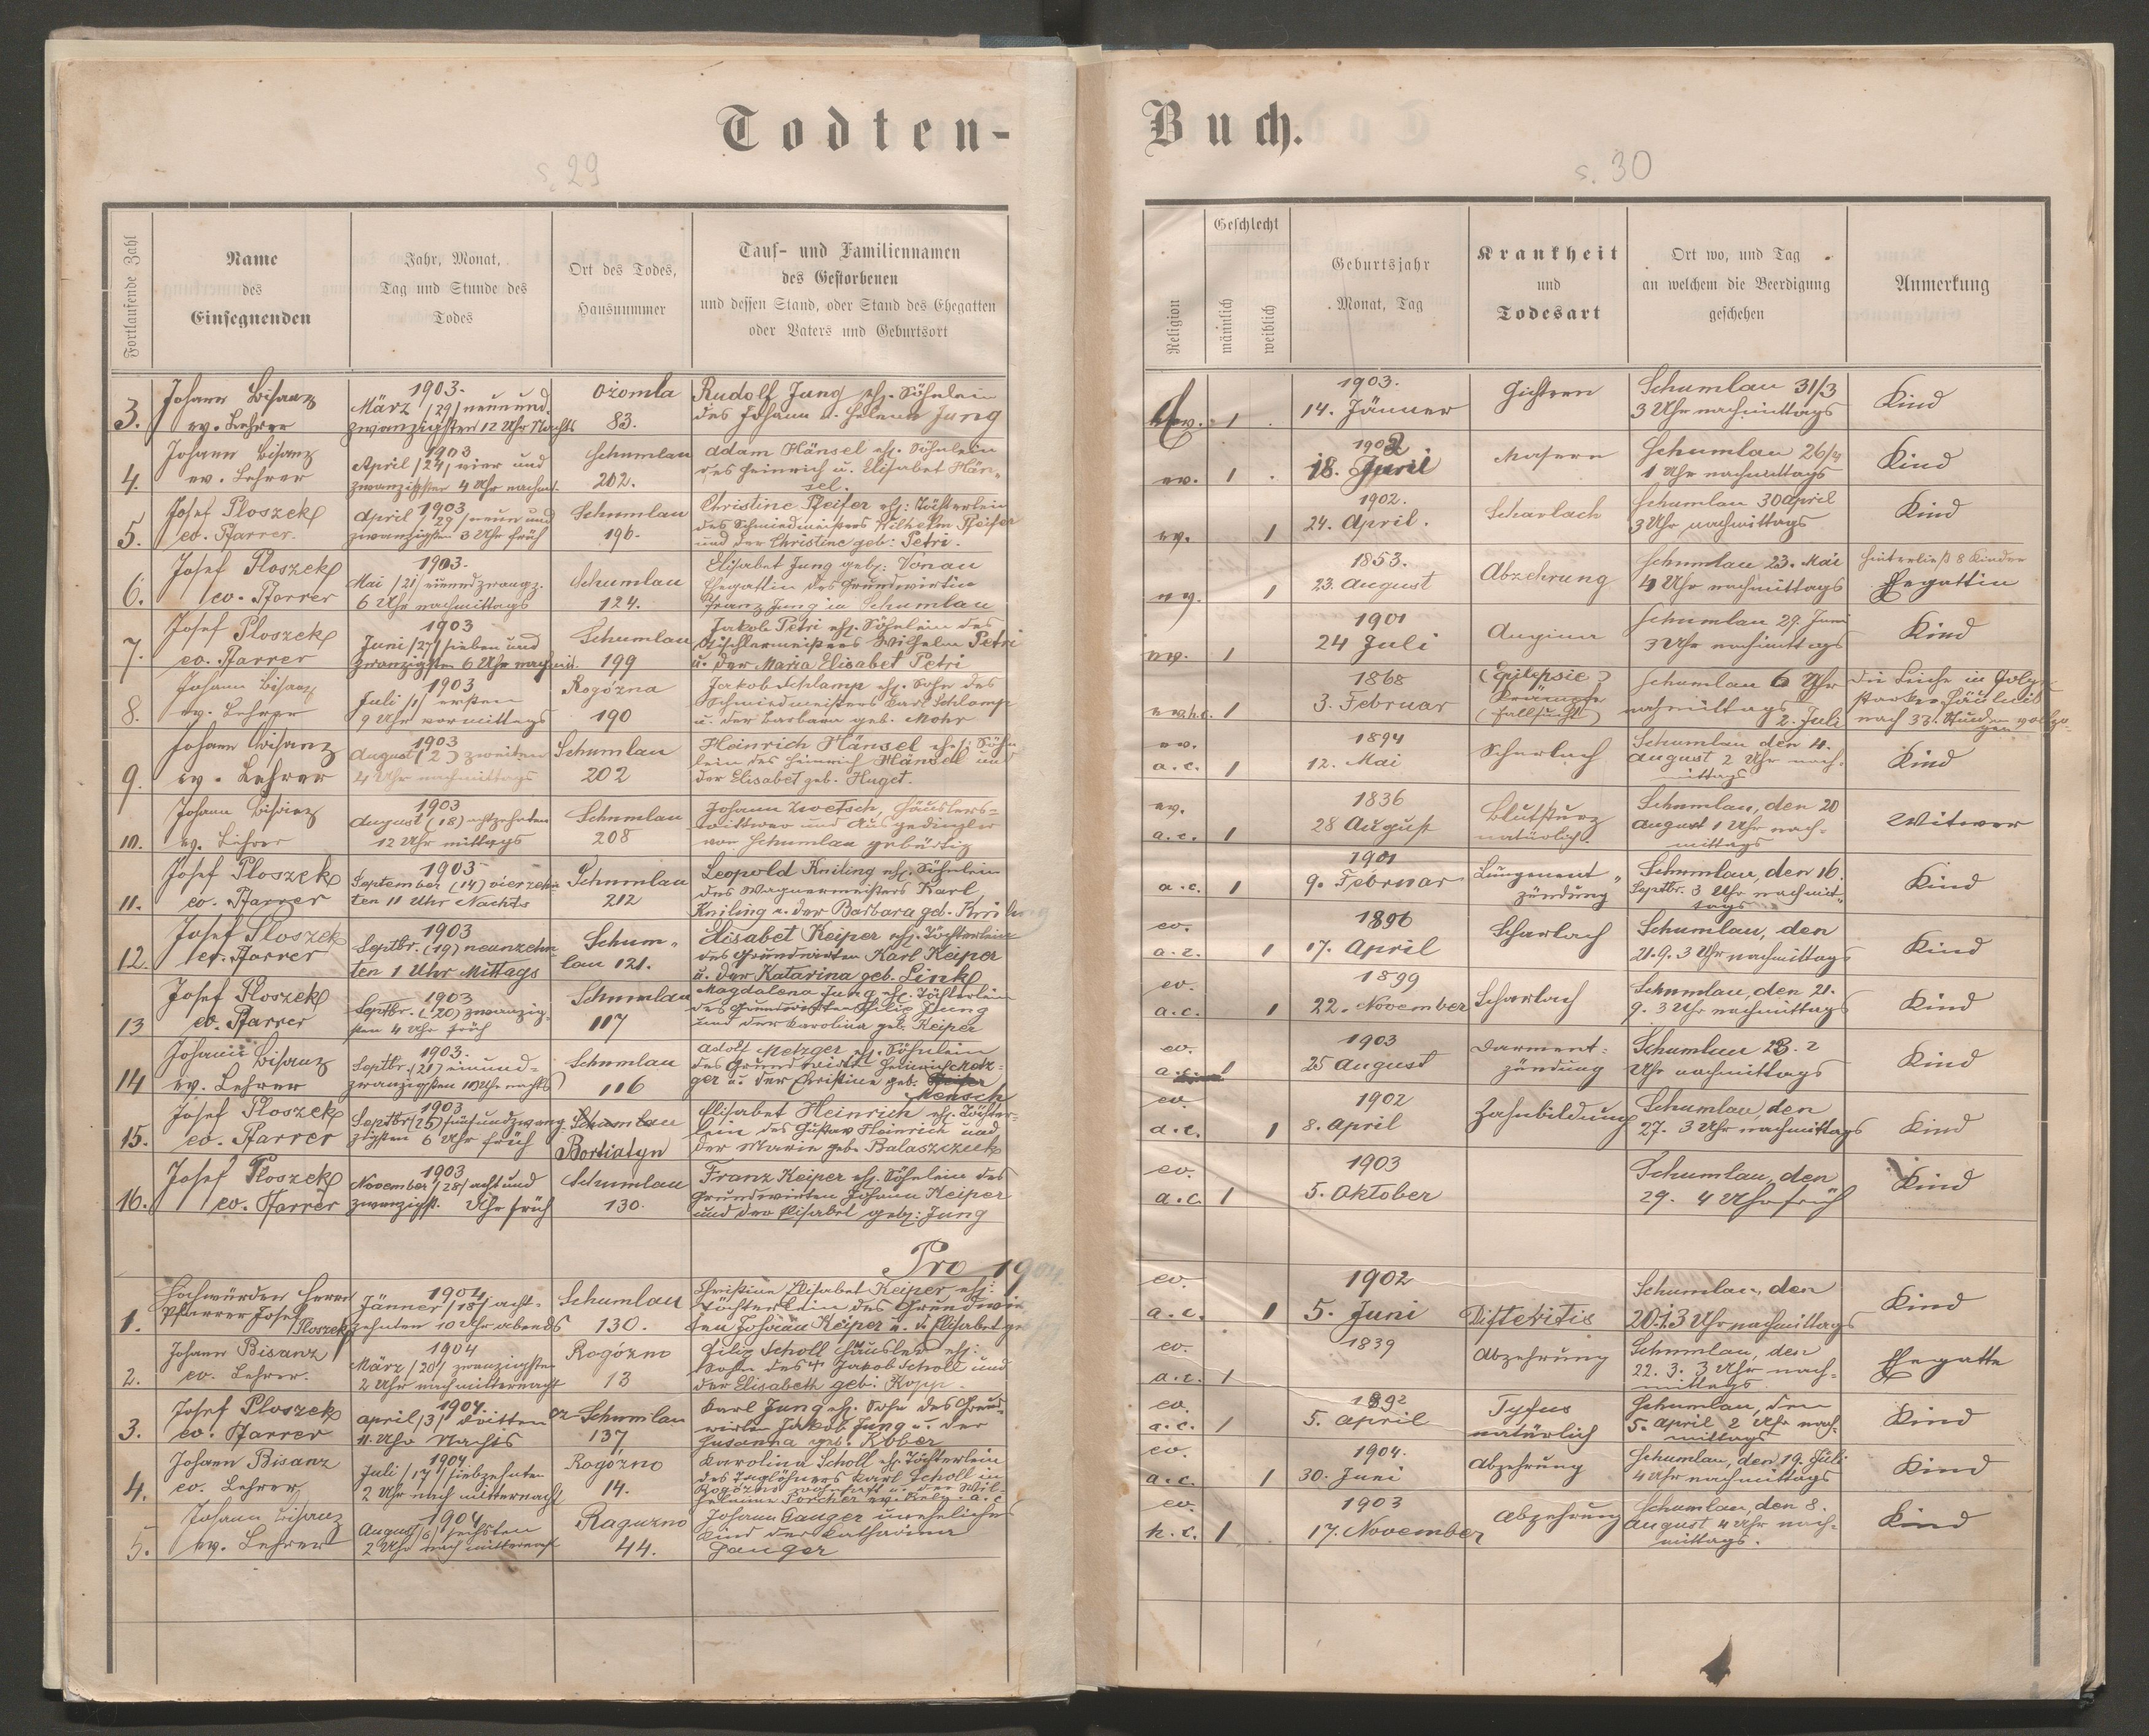 Todten-
s. 29
Fortlaufende Zahl
Name
des
Einsegnenden
Jahr, Monat,
Tag und Stunde des
Todes
Ort des Todes,
Hausnummer
Tauf- und Familiennamen
des Gestorbenen
und dessen Stand, oder Stand des Ehegatten
oder Vaters und Geburtsort
3.
Johann Bisanz
ev. Lehrer
1903.
März /29/ neunund
zwanzigsten 12 Uhr Nachts
Ożomla
83.
Rudolf Jung ehl. Söhnlein
des Johann u. Helena Jung
4.
Johann Bisanz
ev. Lehrer
1903
April /24/ vier und
zwanzigsten 4 Uhr nachmt.
Schumlau
202.
Adam Hänsel ehl. Söhnlein
des Heinrich u. Elisabet Hän-
sel.
5.
Josef Ploszek
ev. Pfarrer.
1903
April /29/ neun und
zwanzigsten 3 Uhr früh
Schumlau
196.
Christine Pfeifer ehl: Töchterlein
des Schmiedmeisters Wilhelm Pfeifer
und der Christine geb: Petri.
6.
Josef Ploszek
ev. Pfarrer
1903.
Mai /21/
6 Uhr nachmittags
Schumlau
124.
Elisabet Jung geb: Vonau
Ehegattin des Grundwirten
Franz Jung in Schumlau
7.
Josef Ploszek
ev. Pfarrer
1903
Juni /27/ sieben und
zwanzigsten 6 Uhr nachmit.
Schumlau
199
Jakob Petri ehl. Söhnlein des
Tischlermeisters Wilhelm Petri
u. der Maria Elisabet Petri
8.
Johann Bisanz
ev. Lehrer
1903
Juli /1/ ersten
9 Uhr vormittags
Rogózna
190
Jakob Schlamp ehl. Sohn des
Schmiedmeisters Karl Schlamp
u. der Barbara geb. Mohr
9.
Johann Bisanz
ev. Lehrer
1903
August (2) zweiten
4 Uhr nachmittags
Schumlau
202
Heinrich Hänsel ehl. Söhn
lein des Heinrich Hänsel und
der Elisabet geb. Huget.
10.
Johann Bisanz
ev. Lehrer
1903
August (18) achtzehnten
12 Uhr mittags
Schumlau
208
Johann Zwetsch, Häuslers-
wittwer und Ausgedingler
von Schumlau gebürtig
11.
Josef Ploszek
ev. Pfarrer
1903
September (14) vierzehn
ten 11 Uhr Nachts
Schumlau
212
Leopold Kniling ehl. Söhnlein
des Wagnermeisters Karl
Kniling u. der Barbara geb. Kniling
12.
Josef Ploszek
ev. Pfarrer
1903
Septbr. (19) neunzehn
ten 1 Uhr Mittags
Schum-
lau 121.
Elisabet Keiper ehl. Töchterlein
des Grundwirten Karl Keiper
u. der Katarina geb. Link
13
Josef Ploszek
ev. Pfarrer
1903
Septbr. (20) zwanzig-
sten 4 Uhr früh
Schumlau
117
Magdalena Jung ehl. Töchterlein
des Grundwirten Filip Jung
und der Karolina geb. Keiper
14
Johann Bisanz
ev. Lehrer
1903.
Septbr. (21) einund-
zwanzigsten 10 Uhr nachts
Schumlau
116
Adolf Metzger ehl. Söhnlein
des Grundwirten Heinrich Metz-
ger u. der Christine geb.
Mensch
15.
Josef Ploszek
ev. Pfarrer
1903
Septbr (25) fünfundzwan-
zigsten 6 Uhr früh
Schumlau
Bortiatyn
Elisabet Heinrich ehl. Töchter-
lein des Gustav Heinrich und
der Marie geb. Balaszczuk
16.
Josef Ploszek
ev. Pfarrer
1903
November /28/ acht und
zwanzigst. Uhr früh
Schumlau
130.
Franz Keiper ehl. Söhnlein des
Grundwirten Johann Keiper
und der Elisabet geb: Jung
Pro 1904.
1.
Hochwürden Herr
Pfarrer Josef
Ploszek
1904
Jänner /18/ acht-
zehnten 10 Uhr abends
Schumlau
130.
Christine Elisabet Keiper ehl:
Töchterlein des Grundwir
ten Johann Keiper u. d. Elisabet ge
2.
Johann Bisanz
ev. Lehrer.
1904
März /20/ zwanzigsten
2 Uhr nachmitternacht
Rogózno
13
Filip Scholl Häusler ehl:
Sohn des † Jakob Scholl und
der Elisabeth geb: Kopp.
3.
Josef Ploszek
ev. Pfarrer
1904.
April /3/ dritten
11. Uhr Nachts
Schumlau
137
Karl Jung ehl. Sohn des Grund-
wirten Jakob Jung u. der
Susanna geb. Kober
4.
Johann Bisanz
ev. Lehrer,
1904
Juli /17/ siebzehnten
2 Uhr nach mitternacht
Rogózno
14.
Karolina Scholl ehl. Töchterlein
des Taglöhners Karl Scholl in
Rogózno wohnhaft u. der Wil-
helmine Porcher ev. Relg. a. c
5.
Johann Bisanz
ev. Lehrer
1904
August /6/ sechsten
2 Uhr nach mitternacht
Raguzno
44.
Johann Ganger uneheliches
Kind der Katharina
Ganger
Buch.
s. 30
Religion
Geschlecht
männlich
weiblich
Geburtsjahr
Monat, Tag
Krankheit
und
Todesart
Ort wo, und Tag
an welchem die Beerdigung
geschehen
Anmerkung
ev. 1
1903.
14. Jänner
Gichtern
Schumlau 31/3
3 Uhr nachmittags
Kind
ev. 1
1902
18. April
Masern
Schumlau 26/4
1 Uhr nachmittags
Kind
ev. 1
1902.
24. April.
Scharlach
Schumlau 30 April
3 Uhr nachmittags
Kind
ev. 1
1853.
23. August
Abzehrung
Schumlau 23. Mai
4 Uhr nachmittags
Hinterließ 8 Kinder
Ehegattin
ev. 1
1901
24 Juli
Angina
Schumlau 29. Juni
3 Uhr nachmittags
Kind
ev. h.c. 1
1868
3. Februar
(Epilepsie)
(Fallsucht)
Schumlau 6 Uhr
nachmittags
2. Juli
die Leiche in Folge
starker Fäulniß
nach 33. Stunden vollzo-
gen
ev.
a. c. 1
1894
12. Mai
Scharlach
Schumlau den 4.
August 2 Uhr nach-
mittags
Kind
ev.
a. c. 1
1836
28 August
Blutsturz
natürlich.
Schumlau, den 20
August 1 Uhr nach-
mittags
Witwer
a. c. 1
1901
9. Februar
Lungenent-
zündung
Schumlau, den 16.
Septbr. 3 Uhr nachmit-
tags
Kind
ev.
a. c. 1
1896
17. April
Scharlach
Schumlau, den
21. 9. 3 Uhr nachmittags
Kind
ev.
a. c. 1
1899
22. November
Scharlach
Schumlau, den 21.
9. 3 Uhr nachmittags
Kind
ev.
a. c. 1
1903
25 August
Darment-
zündung
Schumlau 23. 2
Uhr nachmittags
Kind
ev.
a. c. 1
1902
8. April
Zahnbildung
Schumlau, den
27. 3 Uhr nachmittags
Kind
ev.
a. c. 1
1903
5. Oktober
Schumlau, den
29. 4 Uhr früh
Kind
ev.
a. c. 1
1902
5. Juni
Difteritis
Schumlau, den
20. 1. 3 Uhr nachmittags
Kind
ev.
a. c. 1
1839
Abzehrung
Schumlau, den
22. 3. 3 Uhr nach-
mittags.
Ehegatte
ev.
a. c. 1
1892
5. April
Tyfus
natürlich
Schumlau, den
5. April 2 Uhr nach-
mittags
Kind
ev.
a. c. 1
1904.
30. Juni
Abzehrung
Schumlau, den 19. Juli
4 Uhr nachmittags
Kind
ev.
h. c. 1
1903
17. November
Abzehrung
Schumlau, den 8.
August 4 Uhr nach-
mittags.
Kind